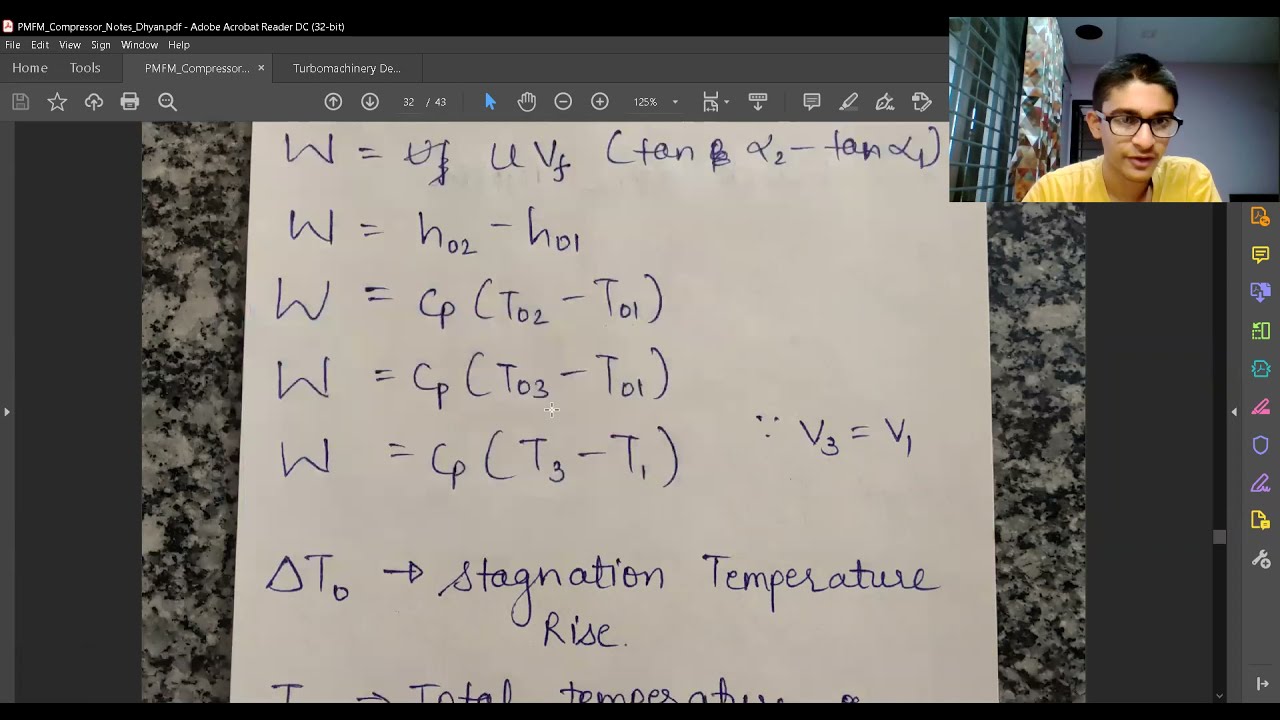 PMFM_Compressor_Notes_Dhyan.pdf - Adobe Acrobat Reader DC (32-bit)
File Edit View Sign Window Help
Home Tools PMFM_Compressor... × Turbomachinery De...
32 / 43 125%
W = U Vf (tan α2 − tan α1)
W = h02 − h01
W = Cp (T02 − T01)
W = Cp (T03 − T01)
W = Cp (T3 − T1) ∵ V3 = V1
ΔT0 → Stagnation Temperature
Rise.
→ Total temperature